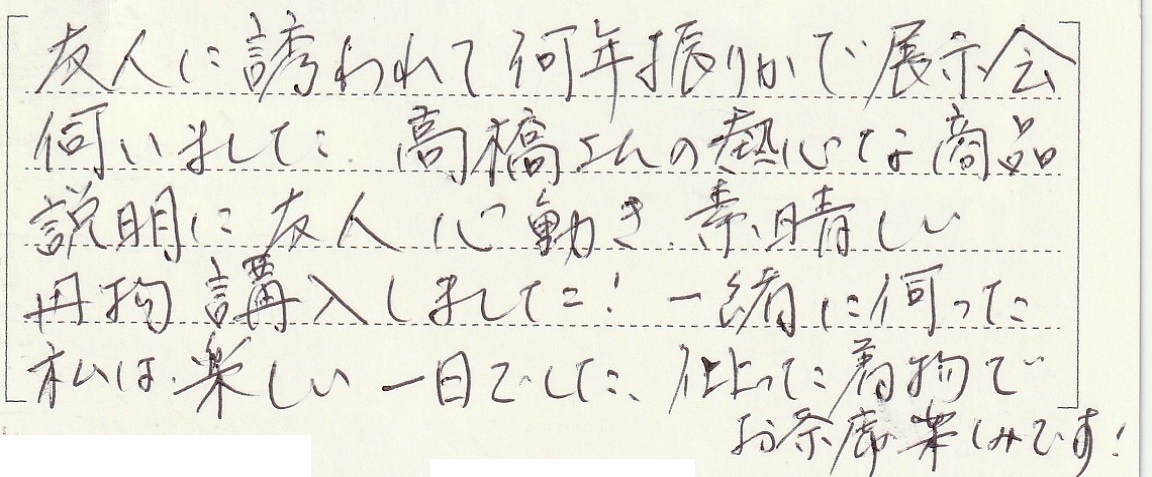 友人に誘われて何年振りかで展示会
伺いました。高橋さんの熱心な商品
説明に友人心動き、素晴しい
再物講入しました！一緒に伺った
私は、楽しい一日でした、仕上った着物で
お茶席楽しみです！